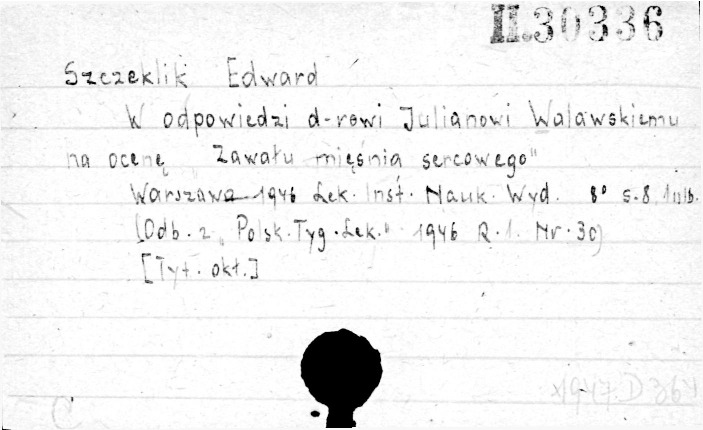 II.30336
Szczeklik Edward
W odpowiedzi d-rowi Julianowi Walawskiemu
na ocenę „Zawału mięśnia sercowego"
Warszawa 1946 Lek. Inst. Nauk. Wyd. 8° s. 8, 1 nlb.
(Odb. z „Polsk. Tyg. Lek." 1946 R. 1. Nr. 30)
[Tyt. okł.]
1947 D 364